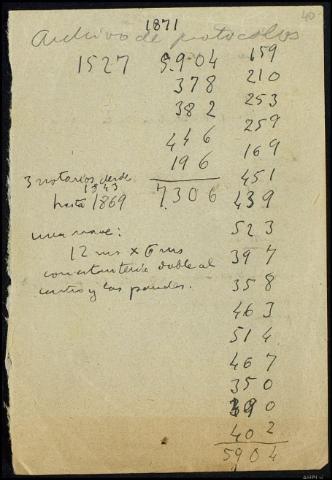 1871
40
Archivo de protocolos
1527
5.904
378
382
446
196
7.306
3 notarios desde
1843
hasta 1869
una nave:
12 ms x 6 ms
con estantería doble al
centro y las paredes.
159
210
253
259
169
451
439
523
397
358
463
514
467
350
390
402
5904